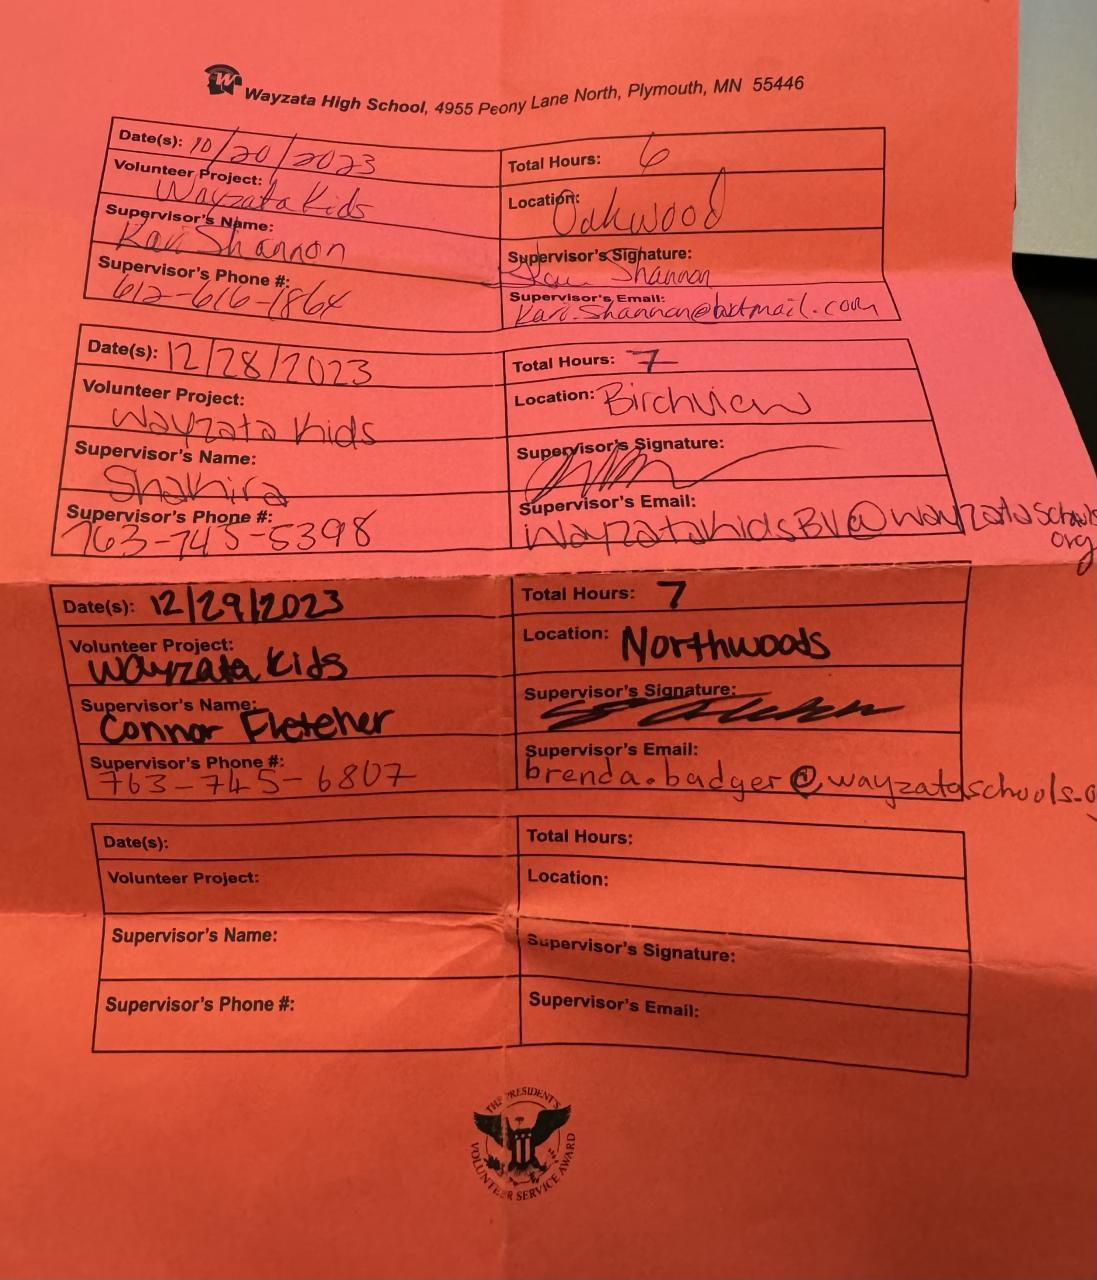 W Wayzata High School, 4955 Peony Lane North, Plymouth, MN 55446
Date(s): 10/20/2023
Total Hours: 6
Volunteer Project: Wayzata Kids
Location: Oakwood
Supervisor's Name: Kari Shannon
Supervisor's Signature: Kari Shannon
Supervisor's Phone #: 612-616-1864
Supervisor's Email: Kari.Shannon@hotmail.com
Date(s): 12/28/2023
Total Hours: 7
Volunteer Project: Wayzata Kids
Location: Birchview
Supervisor's Name: Shakira
Supervisor's Signature:
Supervisor's Phone #: 763-745-5398
Supervisor's Email: WayzataKidsBV@wayzataschools.
org
Date(s): 12/29/2023
Total Hours: 7
Volunteer Project: Wayzata Kids
Location: Northwoods
Supervisor's Name: Connor Fletcher
Supervisor's Signature:
Supervisor's Phone #: 763-745-6807
Supervisor's Email: brenda.badger@wayzataschools.o
Date(s):
Total Hours:
Volunteer Project:
Location:
Supervisor's Name:
Supervisor's Signature:
Supervisor's Phone #:
Supervisor's Email:
THE PRESIDENT'S
VOLUNTEER SERVICE AWARD